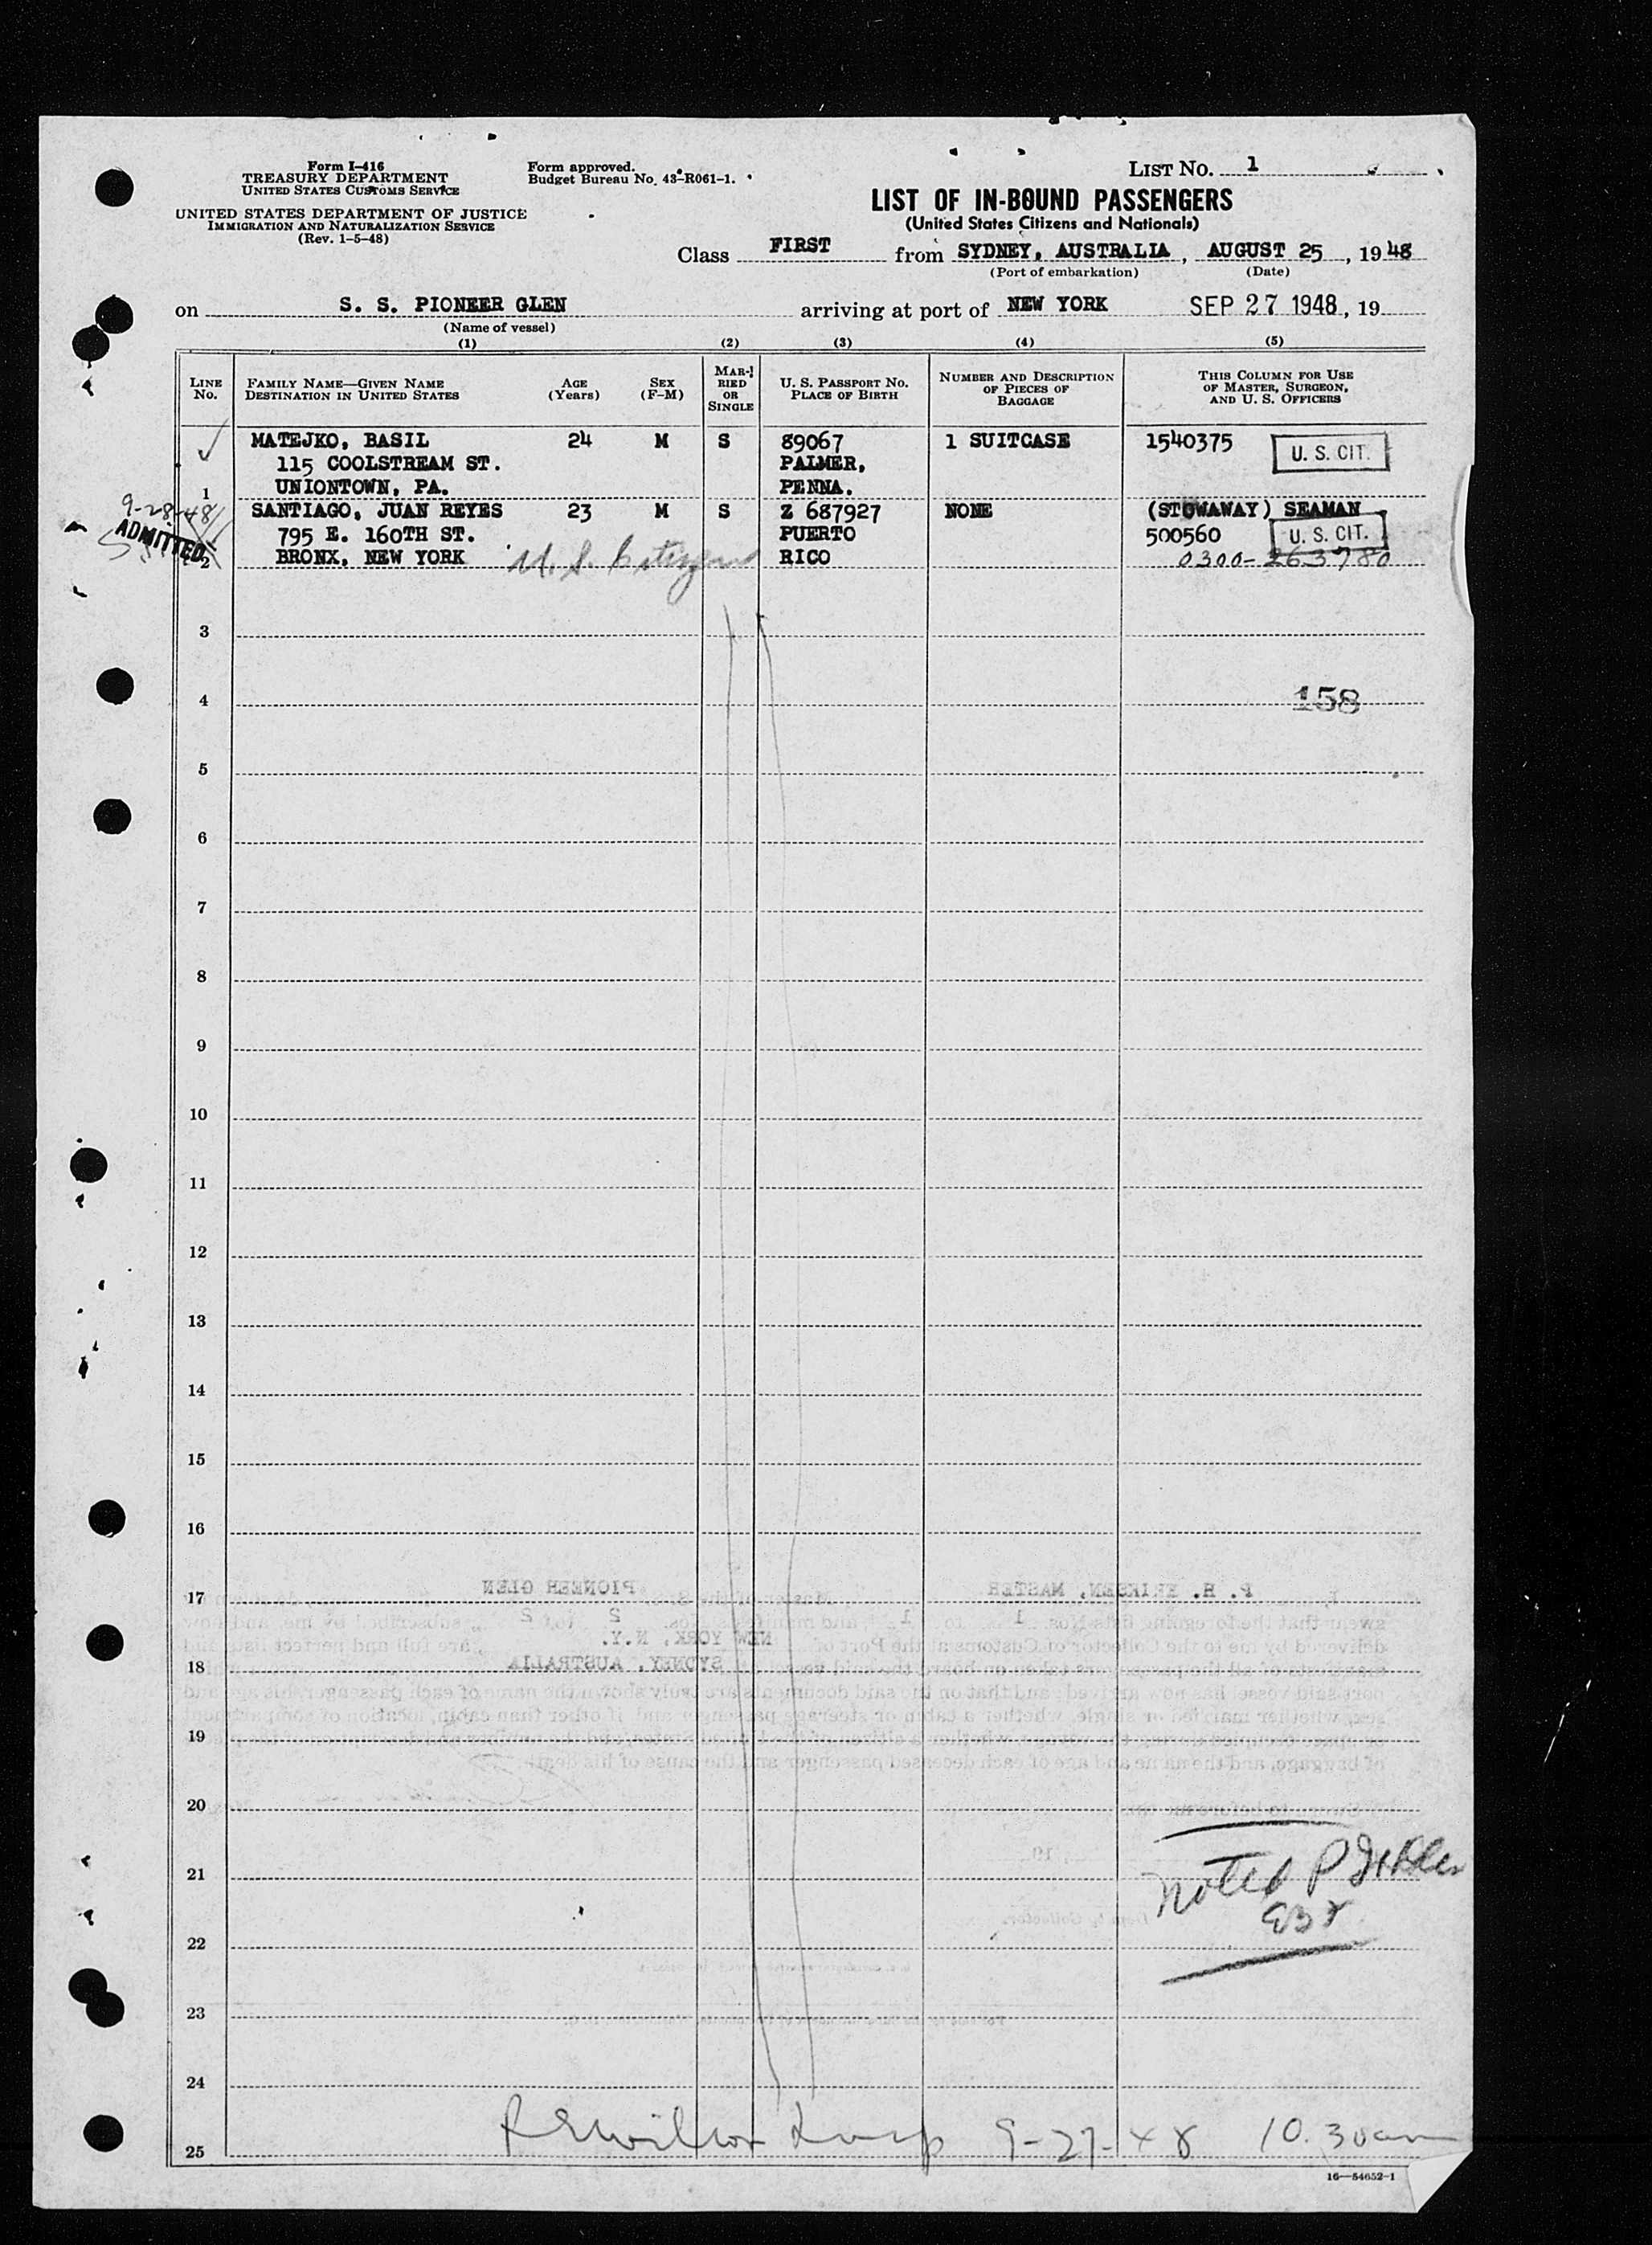 Form I-416
TREASURY DEPARTMENT
UNITED STATES CUSTOMS SERVICE
UNITED STATES DEPARTMENT OF JUSTICE
IMMIGRATION AND NATURALIZATION SERVICE
(Rev. 1-5-48)
Form approved.
Budget Bureau No. 43-R061-1.
LIST NO. 1
LIST OF IN-BOUND PASSENGERS
(United States Citizens and Nationals)
Class FIRST from SYDNEY, AUSTRALIA, AUGUST 25, 1948
(Port of embarkation) (Date)
on S. S. PIONEER GLEN arriving at port of NEW YORK SEP 27 1948, 19
(Name of vessel)
(1) (2) (3) (4) (5)
LINE No.
FAMILY NAME—GIVEN NAME
DESTINATION IN UNITED STATES
AGE (Years)
SEX (F-M)
MARRIED OR SINGLE
U. S. PASSPORT NO.
PLACE OF BIRTH
NUMBER AND DESCRIPTION OF PIECES OF BAGGAGE
THIS COLUMN FOR USE OF MASTER, SURGEON, AND U. S. OFFICERS
MATEJKO, BASIL 24 M S 89067 1 SUITCASE 1540375 U. S. CIT.
115 COOLSTREAM ST. PALMER,
1 UNIONTOWN, PA. PENNA.
9-28-48 SANTIAGO, JUAN REYES 23 M S Z 687927 NONE (STOWAWAY) SEAMAN
ADMITTED 795 E. 160TH ST. PUERTO 500560 U. S. CIT.
2 BRONX, NEW YORK U. S. Citizen RICO 0300-263780
3
4 158
5
6
7
8
9
10
11
12
13
14
15
16
17
18
19
20
21 Noted P
22
23
24
25 9-27-48 10.30am
16—54652-1